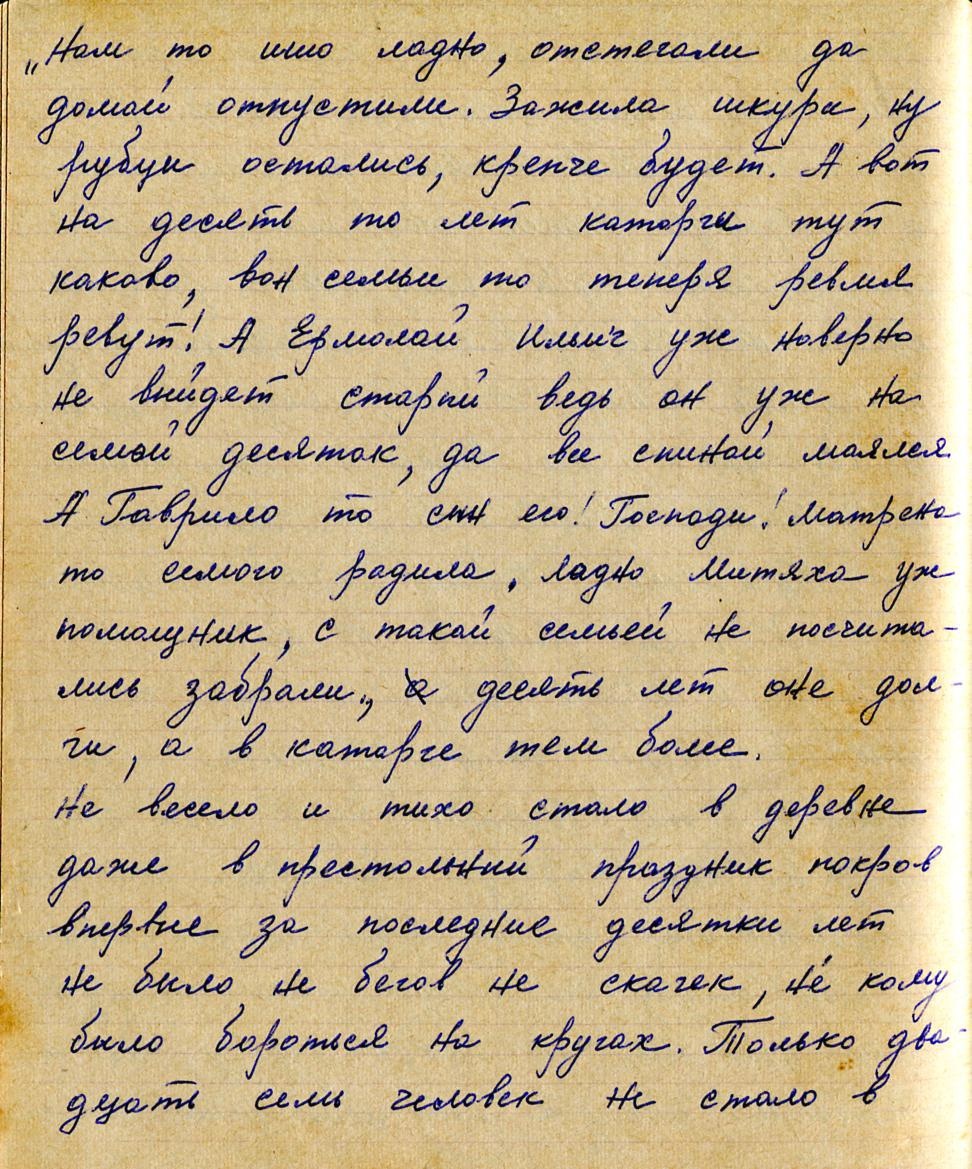 „Нам то ишо ладно, отстегали да
домой отпустили. Зажила шкура, ну
рубцы остались, крепче будет. А вот
на десять то лет каторги тут
каково, вон семьи то теперя ревмя
ревут! А Ермолай Ильич уж наверно
не выйдет старый ведь он уж на
семой десяток, да все спиной маялся
А Гаврило то сын его! Господи! Матрена
то семого радила, ладно Митяха уж
помощник, с такой семьей не посчита-
лись забрали„, а десять лет оне дол-
ги, а в каторге тем более.
Не весело и тихо стало в деревне
даже в престольный праздник покров
впервые за последние десятки лет
не было не бегов не скачек, не кому
было бороться на кругах. Только два-
дцать семь человек не стало в